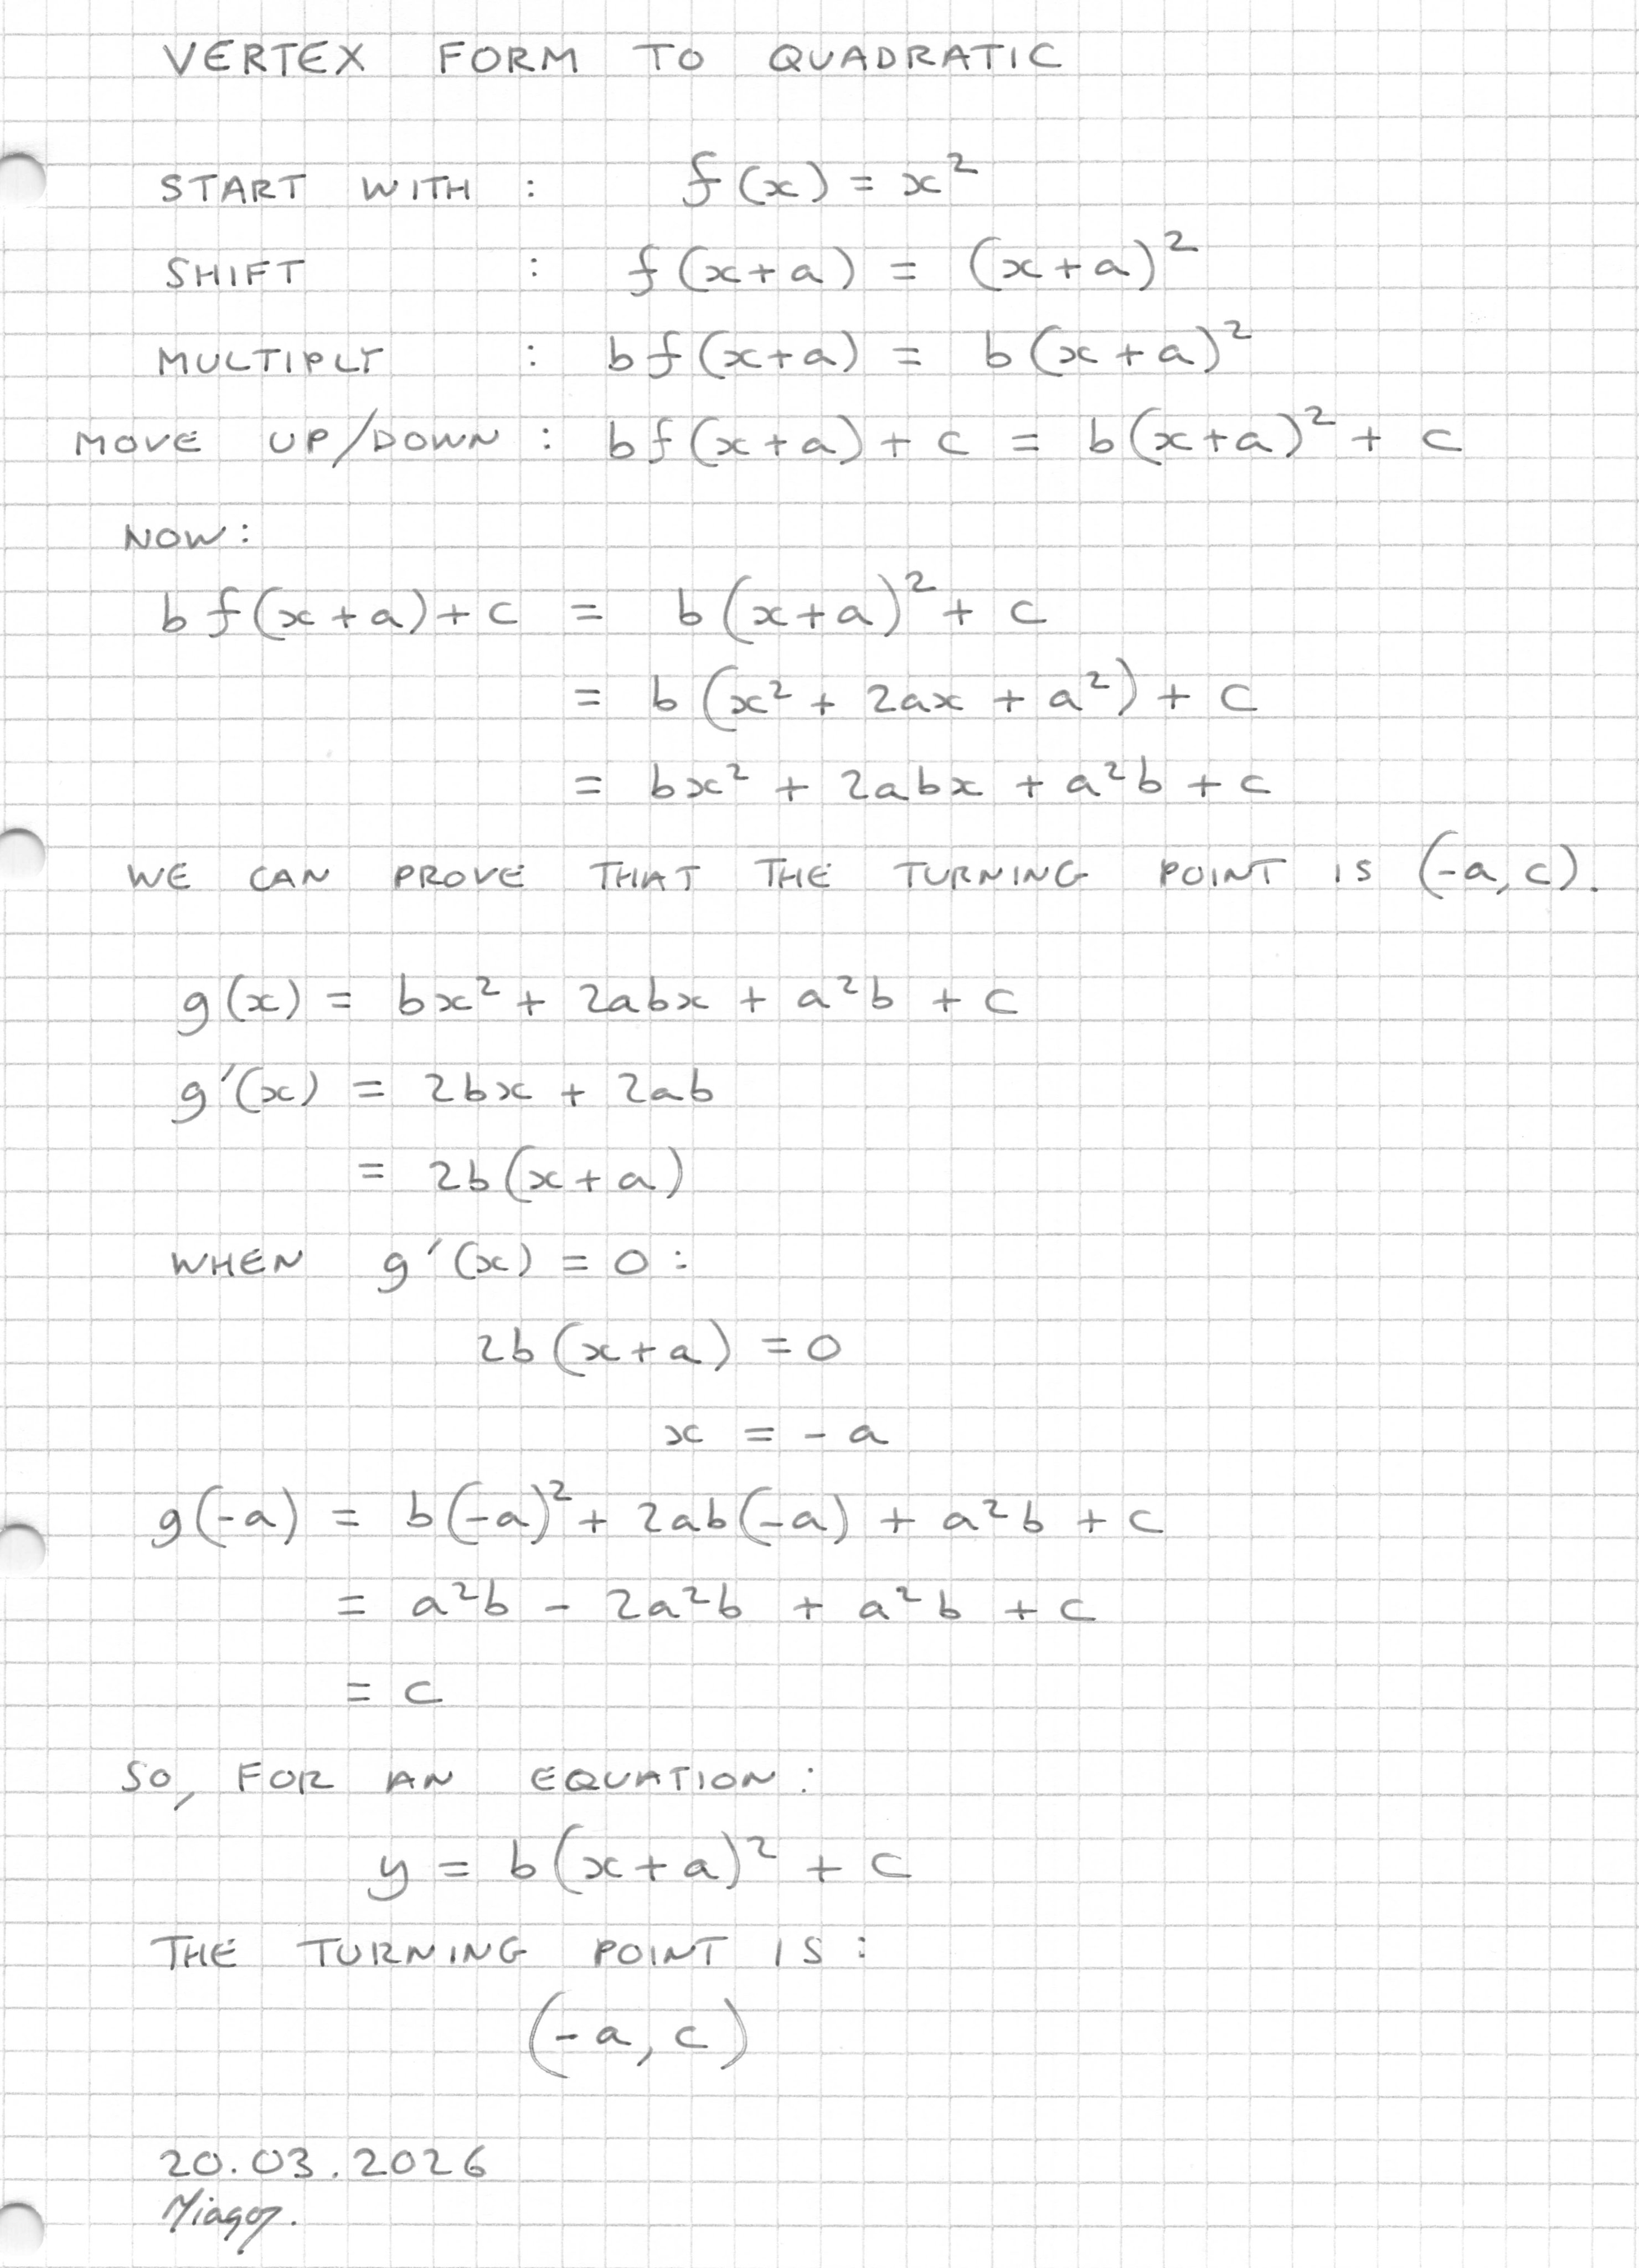 VERTEX FORM TO QUADRATIC
START WITH : f(x) = x²
SHIFT : f(x+a) = (x+a)²
MULTIPLY : bf(x+a) = b(x+a)²
MOVE UP/DOWN : bf(x+a) + c = b(x+a)² + c
NOW:
bf(x+a)+c = b(x+a)² + c
= b(x² + 2ax + a²) + c
= bx² + 2abx + a²b + c
WE CAN PROVE THAT THE TURNING POINT IS (-a, c).
g(x) = bx² + 2abx + a²b + c
g′(x) = 2bx + 2ab
= 2b(x+a)
WHEN g′(x) = 0 :
2b(x+a) = 0
x = -a
g(-a) = b(-a)² + 2ab(-a) + a²b + c
= a²b - 2a²b + a²b + c
= c
SO, FOR AN EQUATION :
y = b(x+a)² + c
THE TURNING POINT IS :
(-a, c)
20.03.2026